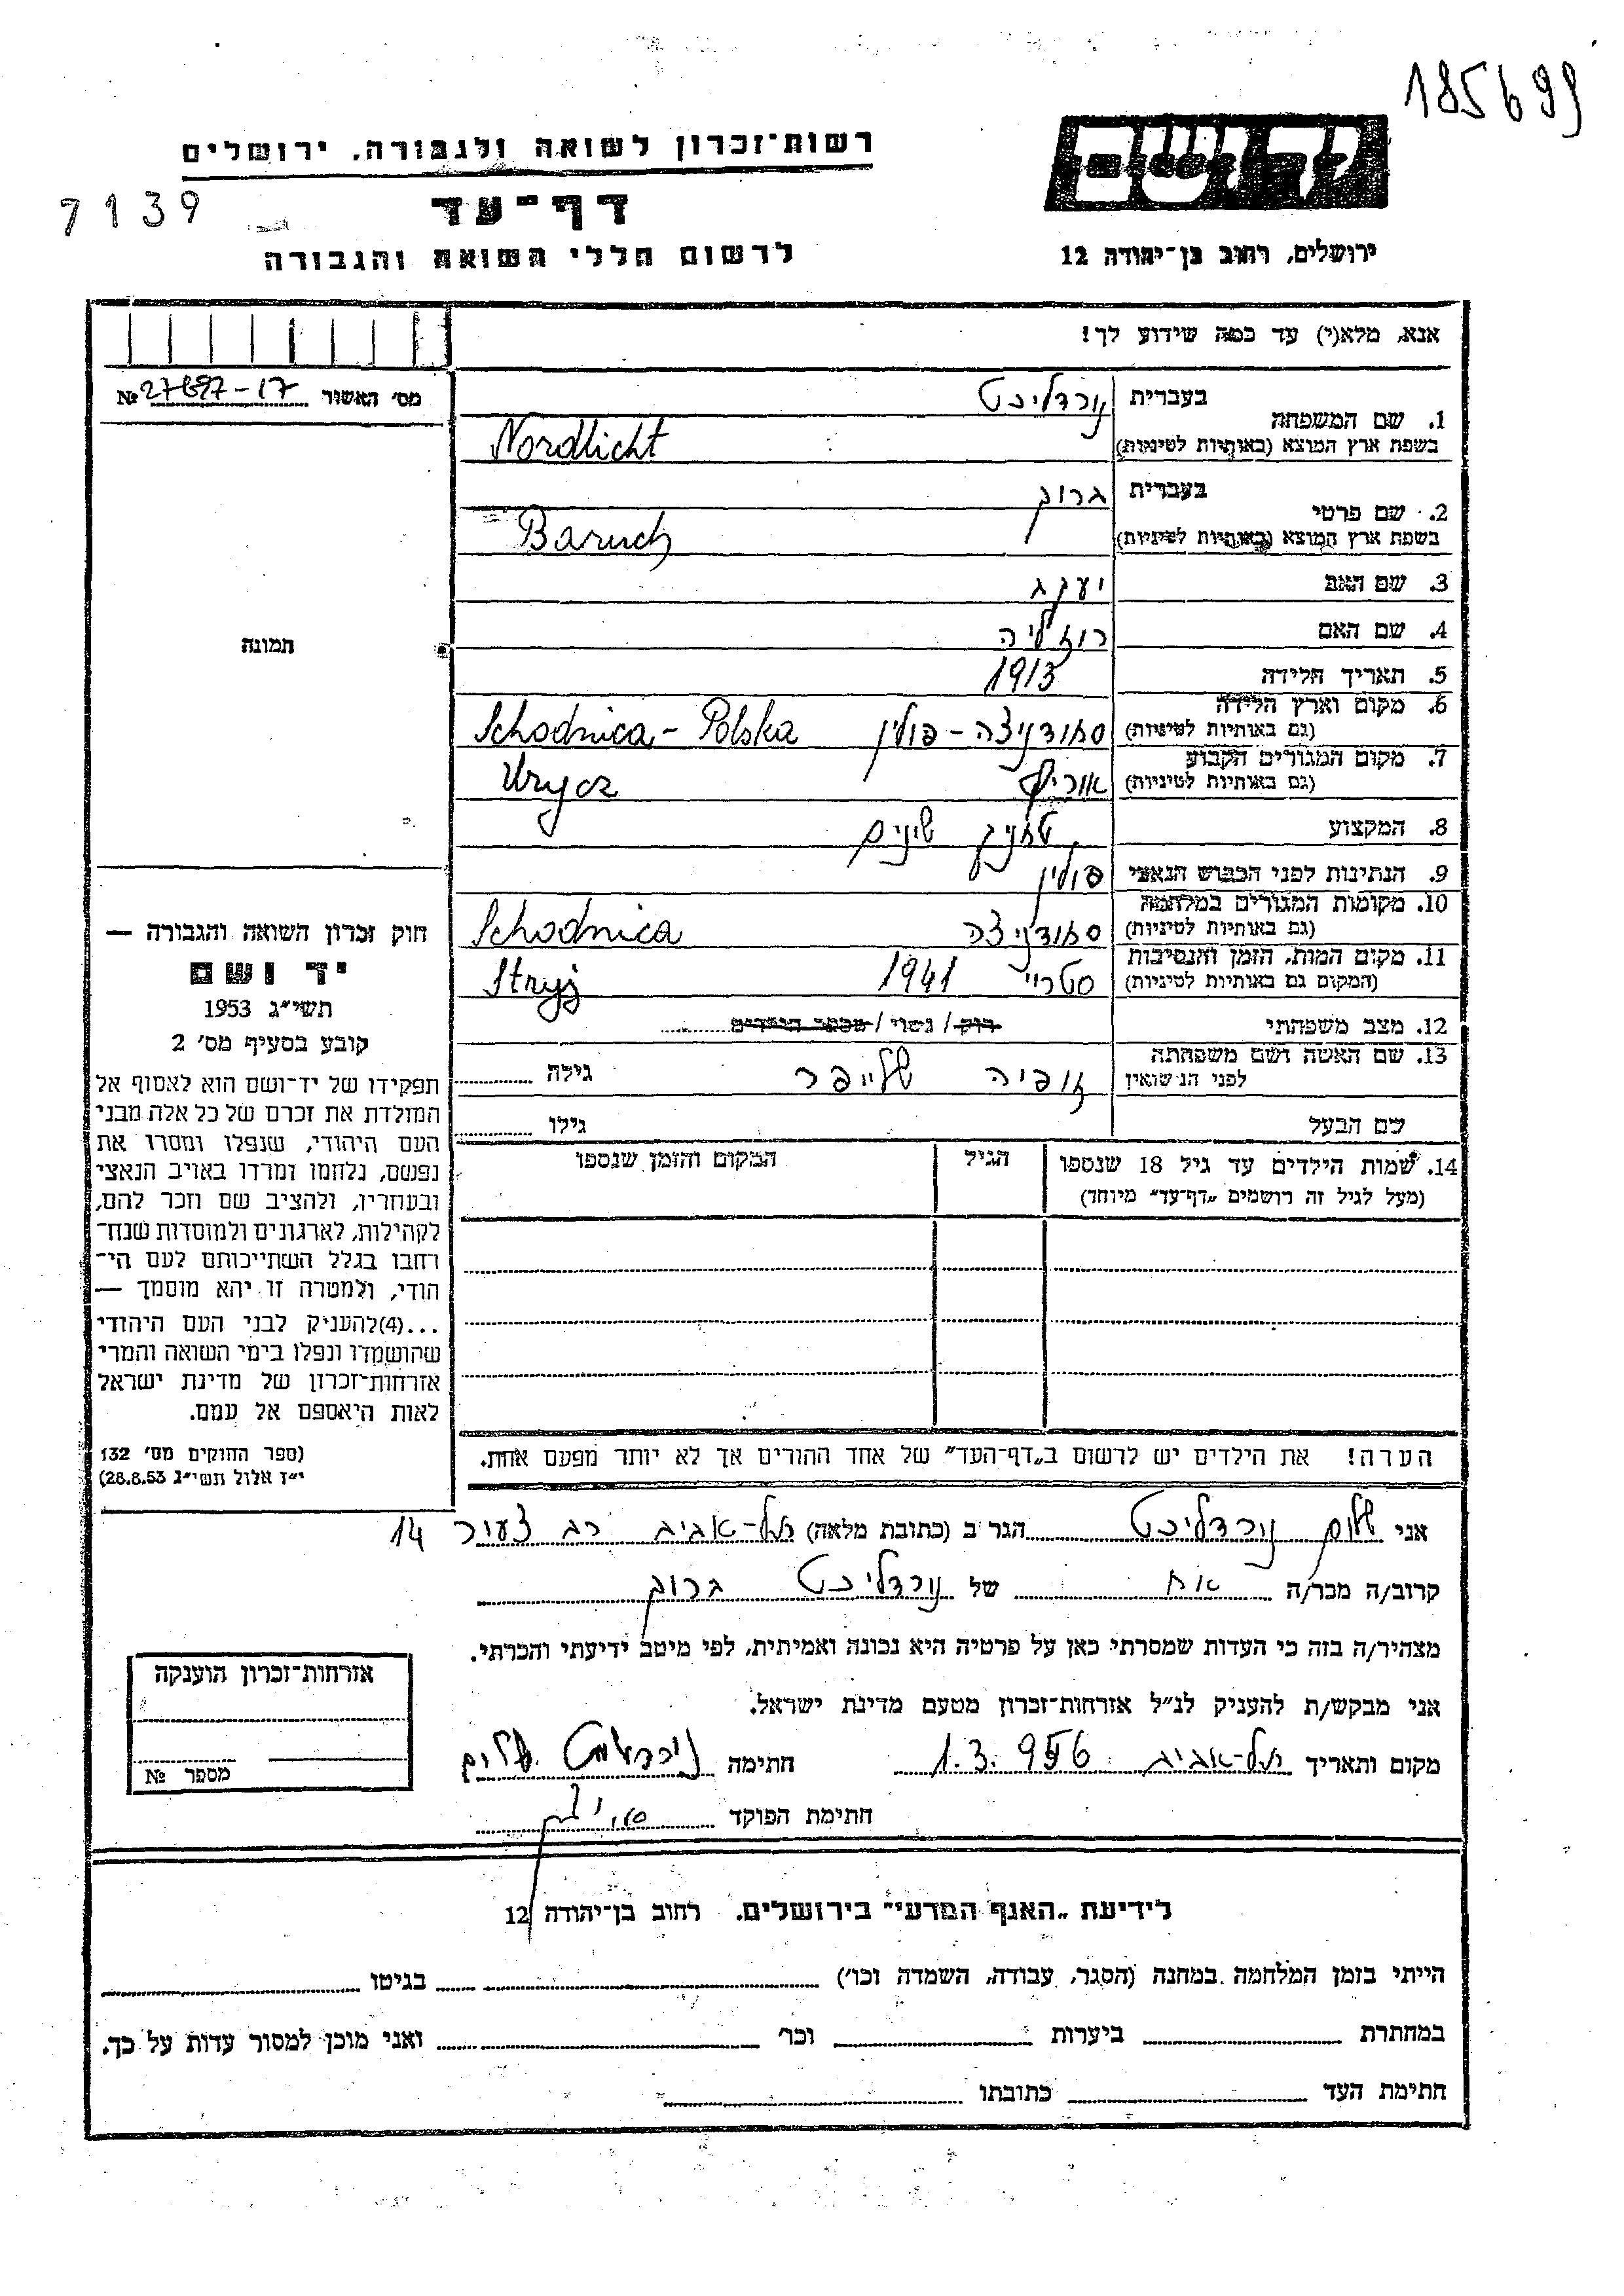 185699
יד ושם
רשות־זכרון לשואה ולגבורה, ירושלים
7139
דף־עד
ירושלים, רחוב בן־יהודה 12
לרשום חללי השואה והגבורה
אנא, מלא(י) עד כמה שידוע לך!
מס׳ האשור 27697-17 №
1. שם המשפחה
בעברית נורדליכט
בשפת ארץ המוצא (באותיות לטיניות) Nordlicht
2. שם פרטי
בעברית ברוך
בשפת ארץ המוצא (באותיות לטיניות) Baruch
3. שם האב יעקב
4. שם האם רוזליה
5. תאריך הלידה 1913
6. מקום וארץ הלידה
(גם באותיות לטיניות) סחודניצה - פולין Schodnica - Polska
7. מקום המגורים הקבוע
(גם באותיות לטיניות) אוריץ Urycz
8. המקצוע טכניק שינים
9. הנתינות לפני הכבוש הנאצי פולין
10. מקומות המגורים במלחמה
(גם באותיות לטיניות) סחודניצה Schodnica
11. מקום המות, הזמן והנסיבות
(המקום גם באותיות לטיניות) סטריי 1941 Stryj
12. מצב משפחתי רוק / נשוי / מספר הילדים
13. שם האשה ושם משפחתה
לפני הנישואין זופיה שלייפר גילה
שם הבעל גילו
14. שמות הילדים עד גיל 18 שנספו
(מעל לגיל זה רושמים „דף־עד״ מיוחד)
הגיל
המקום והזמן שנספו
הערה! את הילדים יש לרשום ב„דף־העד״ של אחד ההורים אך לא יותר מפעם אחת.
תמונה
חוק זכרון השואה והגבורה —
יד ושם
תשי״ג 1953
קובע בסעיף מס׳ 2
תפקידו של יד־ושם הוא לאסוף אל
המולדת את זכרם של כל אלה מבני
העם היהודי, שנפלו ומסרו את
נפשם, נלחמו ומרדו באויב הנאצי
ובעוזריו, ולהציב שם וזכר להם,
לקהילות, לארגונים ולמוסדות שנח־
רחבו בגלל השתייכותם לעם הי־
הודי, ולמטרה זו יהא מוסמך —
...(4)להעניק לבני העם היהודי
שהושמדו ונפלו בימי השואה והמרי
אזרחות־זכרון של מדינת ישראל
לאות היאספם אל עמם.
(ספר החוקים מס׳ 132
י״ז אלול תשי״ג 28.8.53)
אני שלום נורדליכט הגר ב (כתובת מלאה) תל-אביב רב צעיר 14
קרוב/ה מכר/ה אח של נורדליכט ברוך
מצהיר/ה בזה כי העדות שמסרתי כאן על פרטיה היא נכונה ואמיתית, לפי מיטב ידיעתי והכרתי.
אני מבקש/ת להעניק לנ״ל אזרחות־זכרון מטעם מדינת ישראל.
מקום ותאריך תל-אביב 1.3.956 חתימה נורדליכט שלום
חתימת הפוקד
אזרחות־זכרון הוענקה
מספר №
לידיעת „האגף המדעי״ בירושלים, רחוב בן־יהודה 12
הייתי בזמן המלחמה במחנה (הסגר, עבודה, השמדה וכו׳) בגיטו
במחתרת ביערות וכו׳ ואני מוכן למסור עדות על כך.
חתימת העד כתובתו